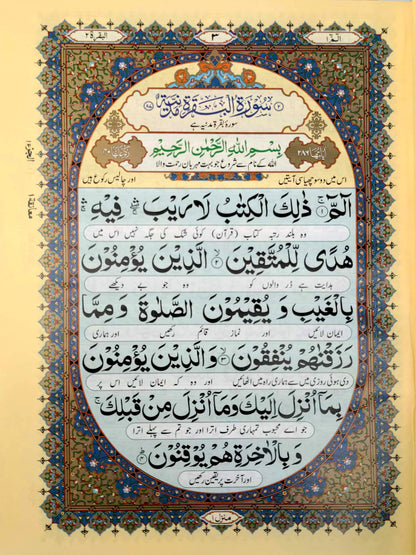 البقرة ٢
٣
الٓمّ ١
سُوْرَةُ الْبَقَرَةِ مَدَنِيَّةٌ
سورۂ بقرۃ مدنیہ ہے
بِسْمِ اللّٰهِ الرَّحْمٰنِ الرَّحِيْمِ
اللہ کے نام سے شروع جو بہت مہربان رحمت والا
اس میں دو سو چھیاسی آیتیں اور چالیس رکوع ہیں
الٓمّٓ ۚ ذٰلِكَ الْكِتٰبُ لَا رَيْبَ ۛ فِيْهِ ۛ
وہ بلند رتبہ کتاب (قرآن) کوئی شک کی جگہ نہیں اس میں
هُدًى لِّلْمُتَّقِيْنَ ۙ الَّذِيْنَ يُؤْمِنُوْنَ
ہدایت ہے ڈر والوں کو وہ جو بے دیکھے
بِالْغَيْبِ وَ يُقِيْمُوْنَ الصَّلٰوةَ وَ مِمَّا
ایمان لائیں اور نماز قائم رکھیں اور ہماری
رَزَقْنٰهُمْ يُنْفِقُوْنَ ۙ وَ الَّذِيْنَ يُؤْمِنُوْنَ
دی ہوئی روزی میں سے ہماری راہ میں اٹھائیں اور وہ کہ ایمان لائیں اس پر
بِمَآ اُنْزِلَ اِلَيْكَ وَ مَآ اُنْزِلَ مِنْ قَبْلِكَ ۚ
جو اے محبوب تمہاری طرف اترا اور جو تم سے پہلے اترا
وَ بِالْاٰخِرَةِ هُمْ يُوْقِنُوْنَ ؕ
اور آخرت پر یقین رکھیں
منزل ١